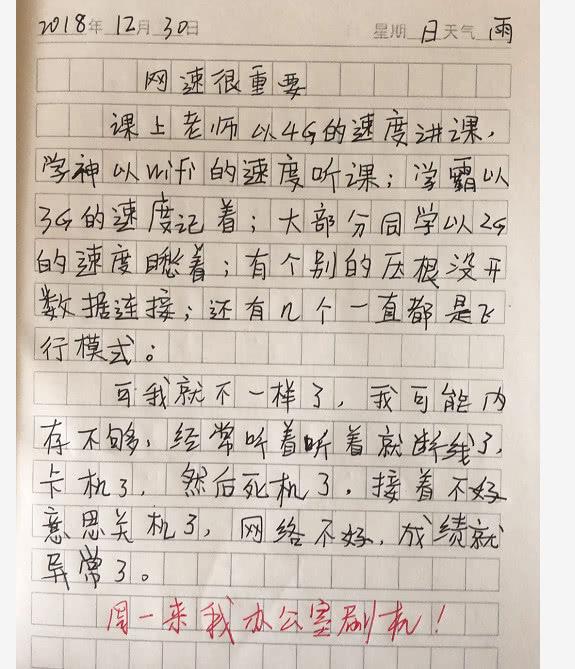 2018年 12月 30日 星期 日 天气 雨
网速很重要
课上老师以4G的速度讲课,
学神以wifi的速度听课;学霸以
3G的速度记着;大部分同学以2G
的速度瞅着;有个别的压根没开
数据连接;还有几个一直都是飞
行模式。
可我就不一样了,我可能内
存不够,经常听着听着就断线了,
卡机了,然后死机了,接着不好
意思关机了,网络不好,成绩就
异常了。
周一来我办公室刷机!